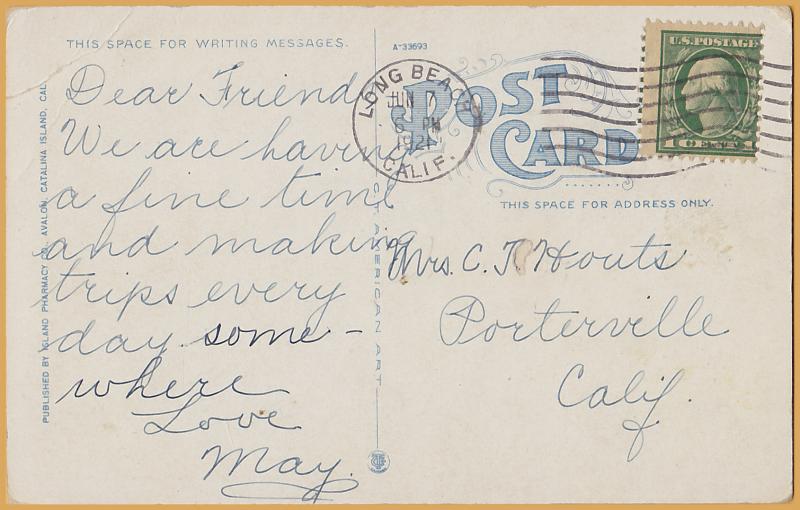 THIS SPACE FOR WRITING MESSAGES.
A-33693
Dear Friend
We are having
a fine time
and making
trips every
day some-
where
Love
May.
PUBLISHED BY ISLAND PHARMACY CO., AVALON, CATALINA ISLAND, CAL.
AMERICAN ART
POST CARD
THIS SPACE FOR ADDRESS ONLY.
LONG BEACH
JUN 7
PM
1921
CALIF.
U.S. POSTAGE
1 CENT 1
Mrs. C. T. Houts
Porterville
Calif.